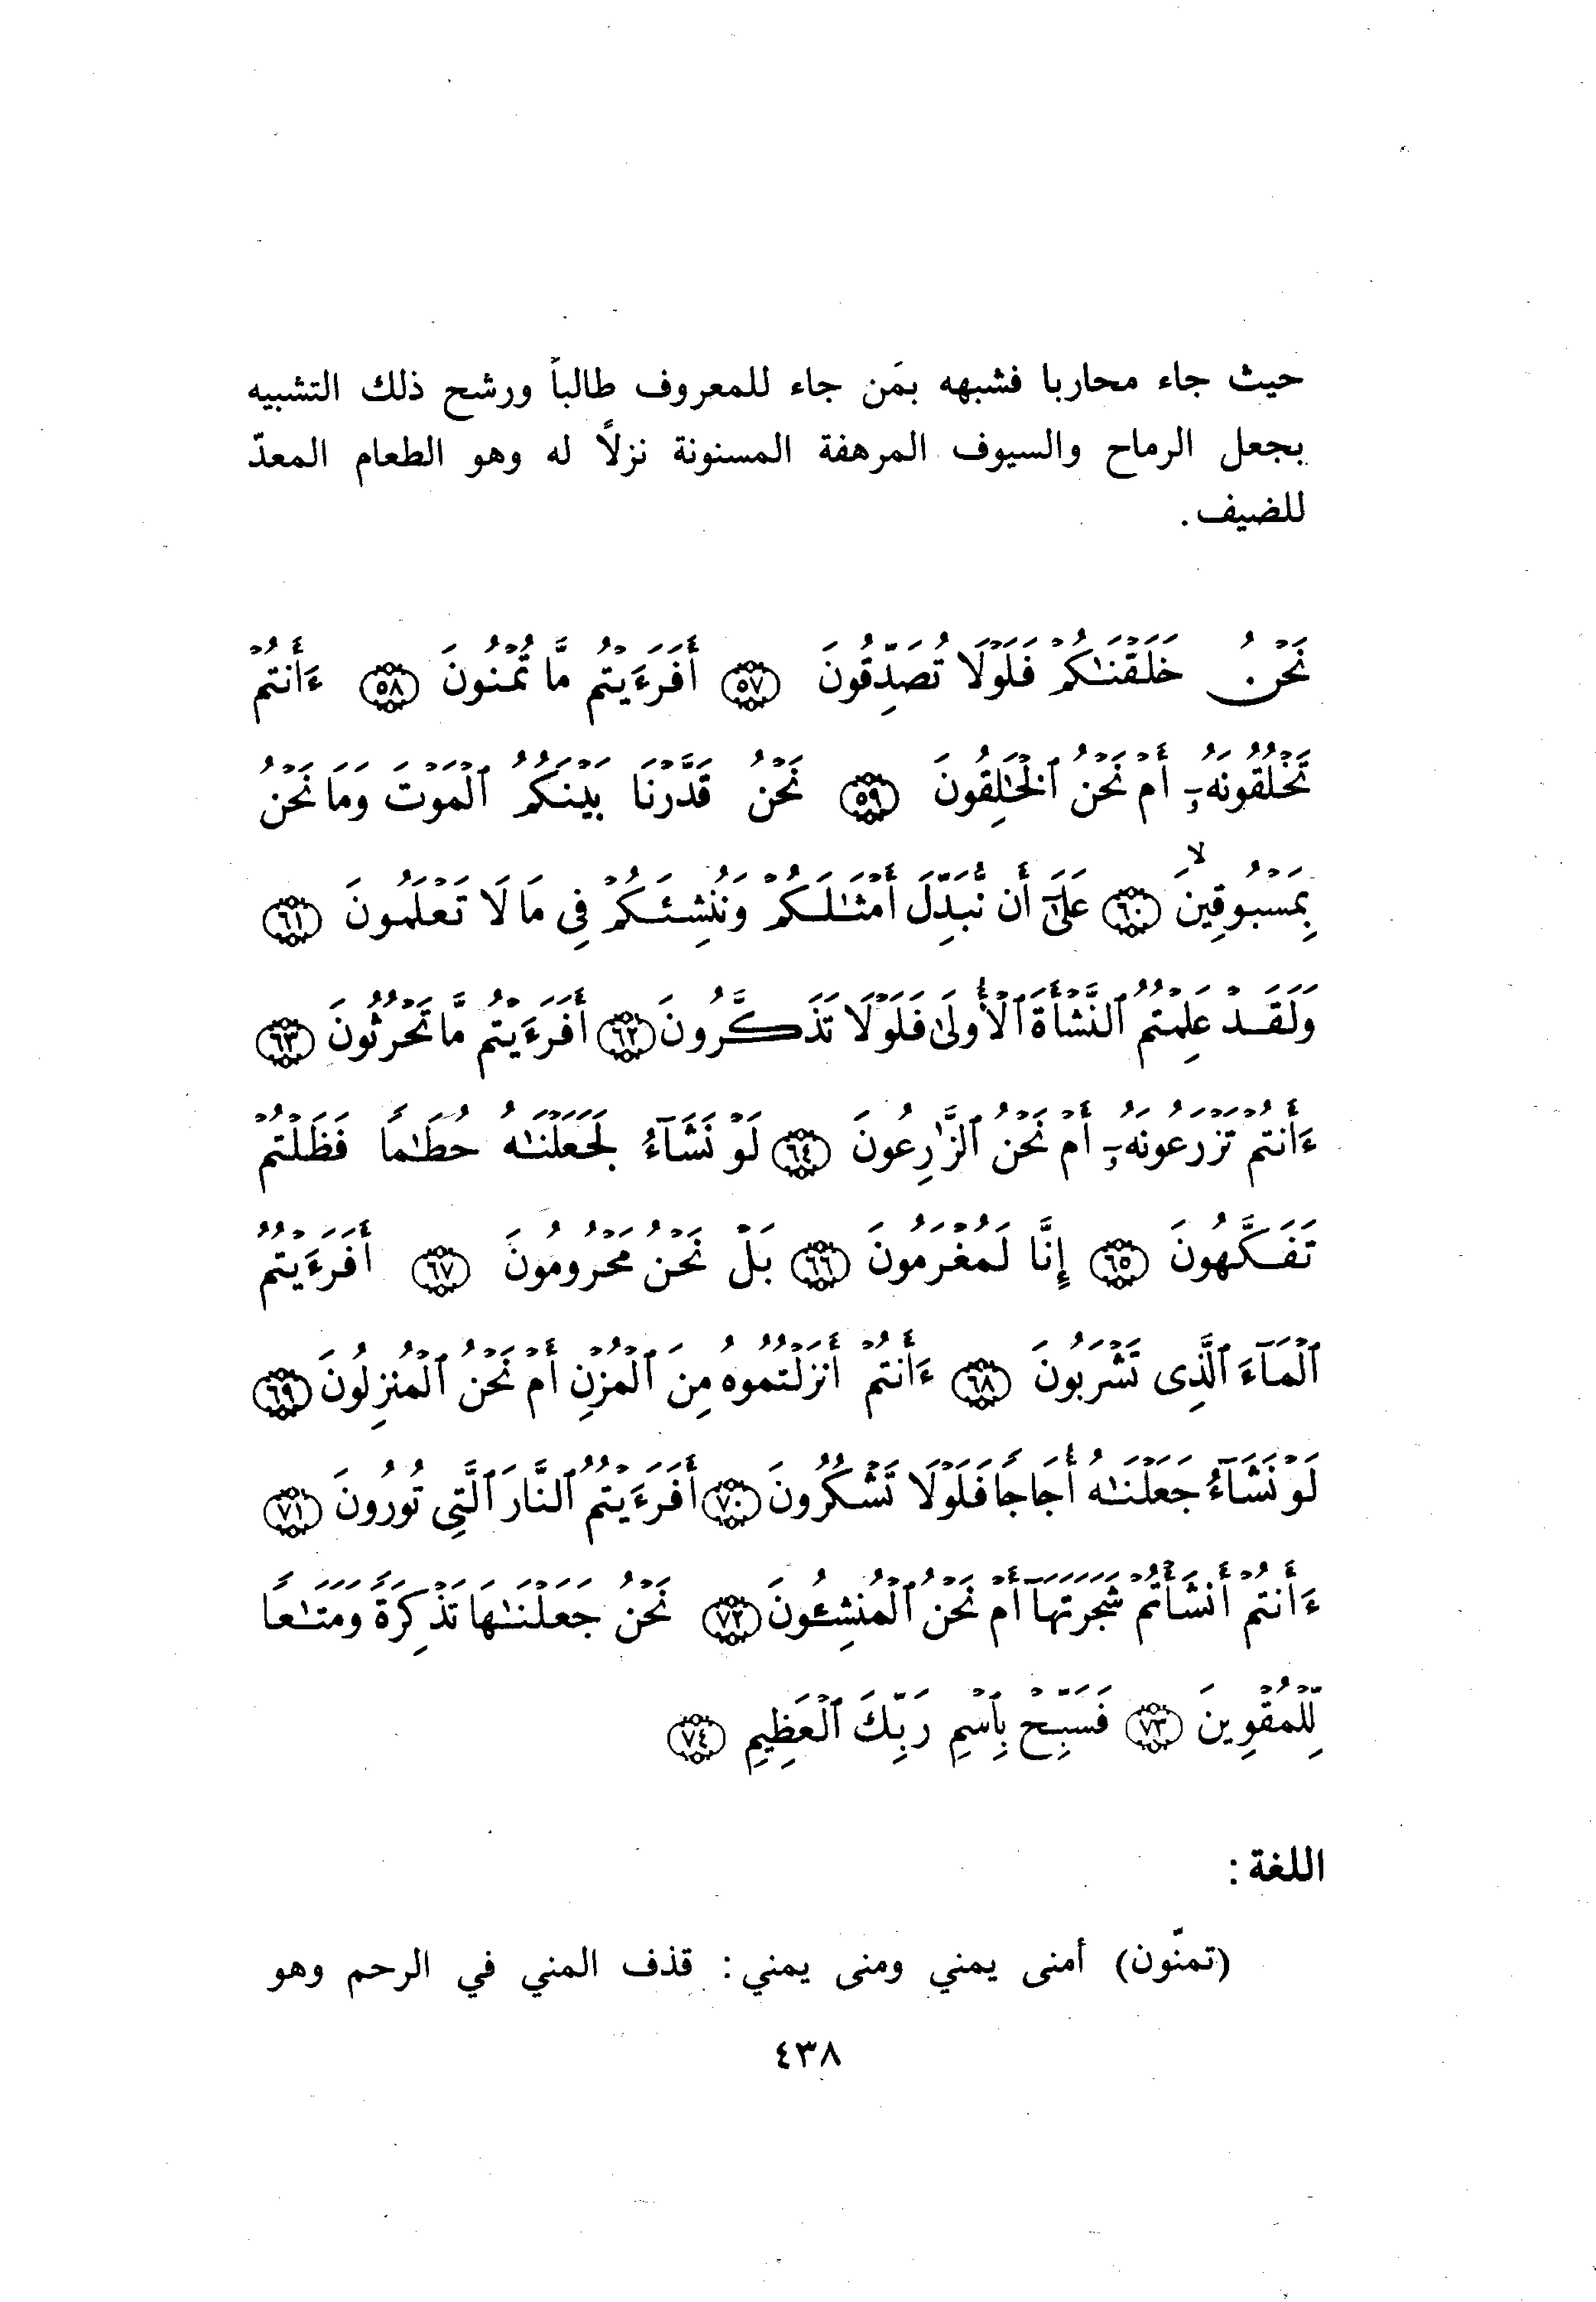 حيث جاء محاربا فشبهه بمَن جاء للمعروف طالباً ورشح ذلك التشبيه
بجعل الرماح والسيوف المرهفة المسنونة نزلاً له وهو الطعام المعدّ
للضيف.
نَحۡنُ خَلَقۡنَـٰكُمۡ فَلَوۡلَا تُصَدِّقُونَ ٥٧ أَفَرَءَيۡتُم مَّا تُمۡنُونَ ٥٨ ءَأَنتُمۡ
تَخۡلُقُونَهُۥٓ أَمۡ نَحۡنُ ٱلۡخَـٰلِقُونَ ٥٩ نَحۡنُ قَدَّرۡنَا بَيۡنَكُمُ ٱلۡمَوۡتَ وَمَا نَحۡنُ
بِمَسۡبُوقِينَۙ ٦٠ عَلَىٰٓ أَن نُّبَدِّلَ أَمۡثَـٰلَكُمۡ وَنُنشِئَكُمۡ فِى مَا لَا تَعۡلَمُونَ ٦١
وَلَقَدۡ عَلِمۡتُمُ ٱلنَّشۡأَةَ ٱلۡأُولَىٰ فَلَوۡلَا تَذَكَّرُونَ ٦٢ أَفَرَءَيۡتُم مَّا تَحۡرُثُونَ ٦٣
ءَأَنتُمۡ تَزۡرَعُونَهُۥٓ أَمۡ نَحۡنُ ٱلزَّٰرِعُونَ ٦٤ لَوۡ نَشَآءُ لَجَعَلۡنَـٰهُ حُطَـٰمًا فَظَلۡتُمۡ
تَفَكَّهُونَ ٦٥ إِنَّا لَمُغۡرَمُونَ ٦٦ بَلۡ نَحۡنُ مَحۡرُومُونَ ٦٧ أَفَرَءَيۡتُمُ
ٱلۡمَآءَ ٱلَّذِى تَشۡرَبُونَ ٦٨ ءَأَنتُمۡ أَنزَلۡتُمُوهُ مِنَ ٱلۡمُزۡنِ أَمۡ نَحۡنُ ٱلۡمُنزِلُونَ ٦٩
لَوۡ نَشَآءُ جَعَلۡنَـٰهُ أُجَاجًا فَلَوۡلَا تَشۡكُرُونَ ٧٠ أَفَرَءَيۡتُمُ ٱلنَّارَ ٱلَّتِى تُورُونَ ٧١
ءَأَنتُمۡ أَنشَأۡتُمۡ شَجَرَتَهَآ أَمۡ نَحۡنُ ٱلۡمُنشِـُٔونَ ٧٢ نَحۡنُ جَعَلۡنَـٰهَا تَذۡكِرَةً وَمَتَـٰعًا
لِّلۡمُقۡوِينَ ٧٣ فَسَبِّحۡ بِٱسۡمِ رَبِّكَ ٱلۡعَظِيمِ ٧٤
اللغة :
(تمنّون) أمنى يمني ومنى يمني : قذف المني في الرحم وهو
٤٣٨